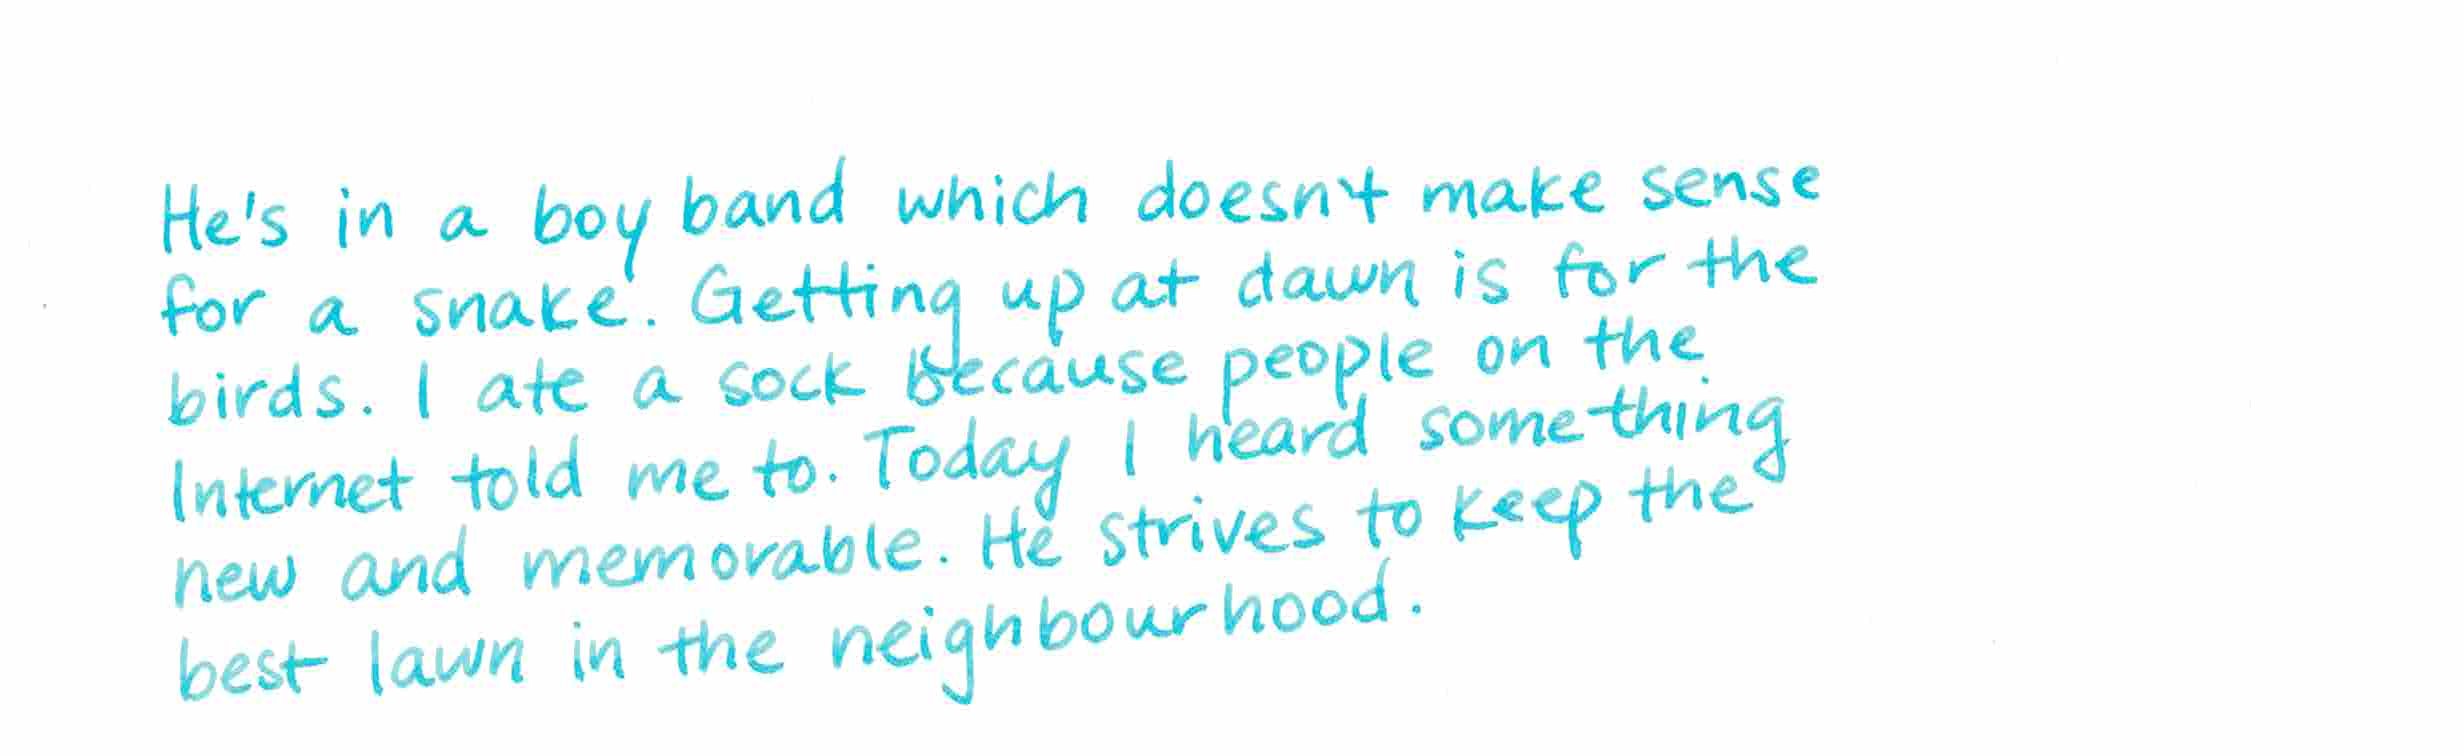 He's in a boy band which doesn't make sense
for a snake. Getting up at dawn is for the
birds. I ate a sock because people on the
Internet told me to. Today I heard something
new and memorable. He strives to keep the
best lawn in the neighbourhood.